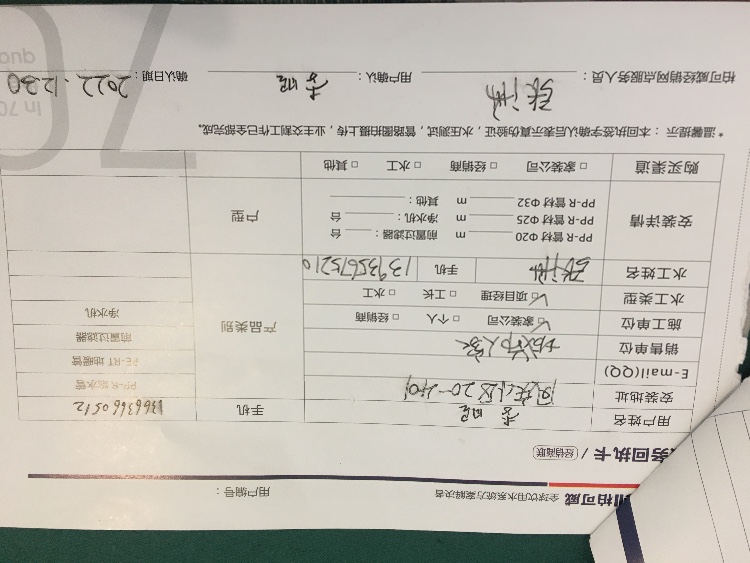 柏可威 全球饮用水系统方案解决者
用户编号：
务回执卡 / 经销商联
用户姓名 李明 手机 13663660512
安装地址 小区20-401
E-mail(QQ)
销售单位
施工单位 ☑家装公司 □个人 □经销商
水工类型 ☑项目经理 □工长 □水工
水工姓名 手机 13935675210
产品类别
PP-R 给水管
PE-RT 地暖管
前置过滤器
净水机
安装详情
PP-R 管材 Φ20 m 前置过滤器： 台
PP-R 管材 Φ25 m 净水机： 台
PP-R 管材 Φ32 m 其他：
户型
购买渠道 □家装公司 □经销商 □水工 □其他
*温馨提示：本回执签字确认后表示真伪验证，水压测试，管路图拍摄上传，业主交割工作已全部完成。
柏可威经销网点服务人员： 用户确认： 李明 确认日期： 2022.12.30
in 70
qua
70